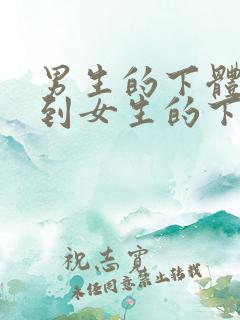 男生的下體
到女生的下
祝志寬
未任同意禁止转载